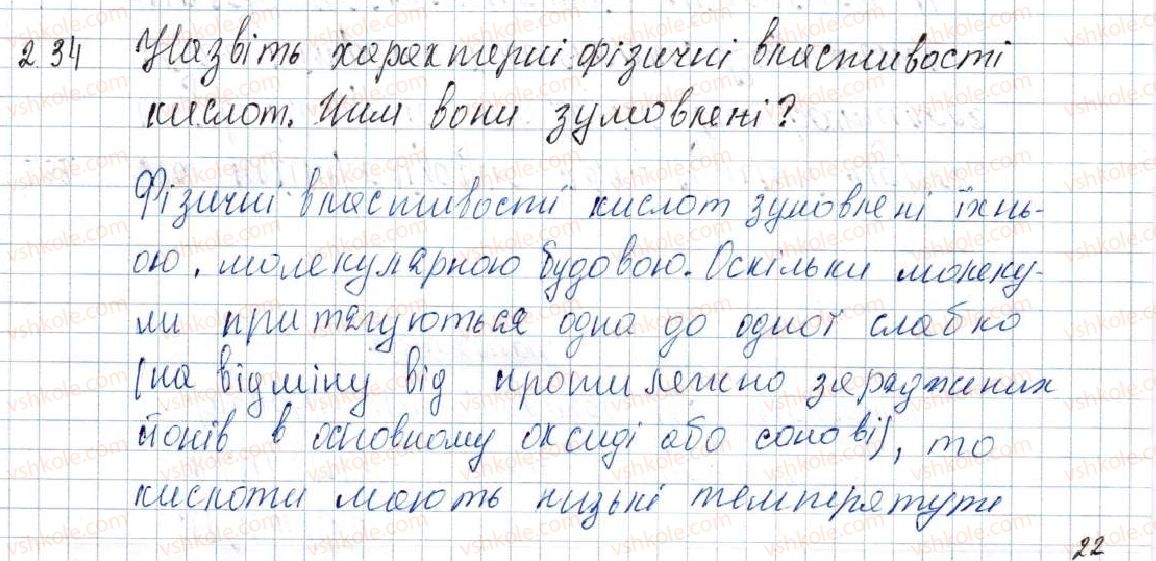 234 Назвіть характерні фізичні властивості
кислот. Чим вони зумовлені?
Фізичні властивості кислот зумовлені їхнь-
ою молекулярною будовою. Оскільки молеку-
ли притягуються одна до одної слабко
(на відміну від протилежно заряджених
йонів в основному оксиді або солі), то
кислоти мають низькі температури
22